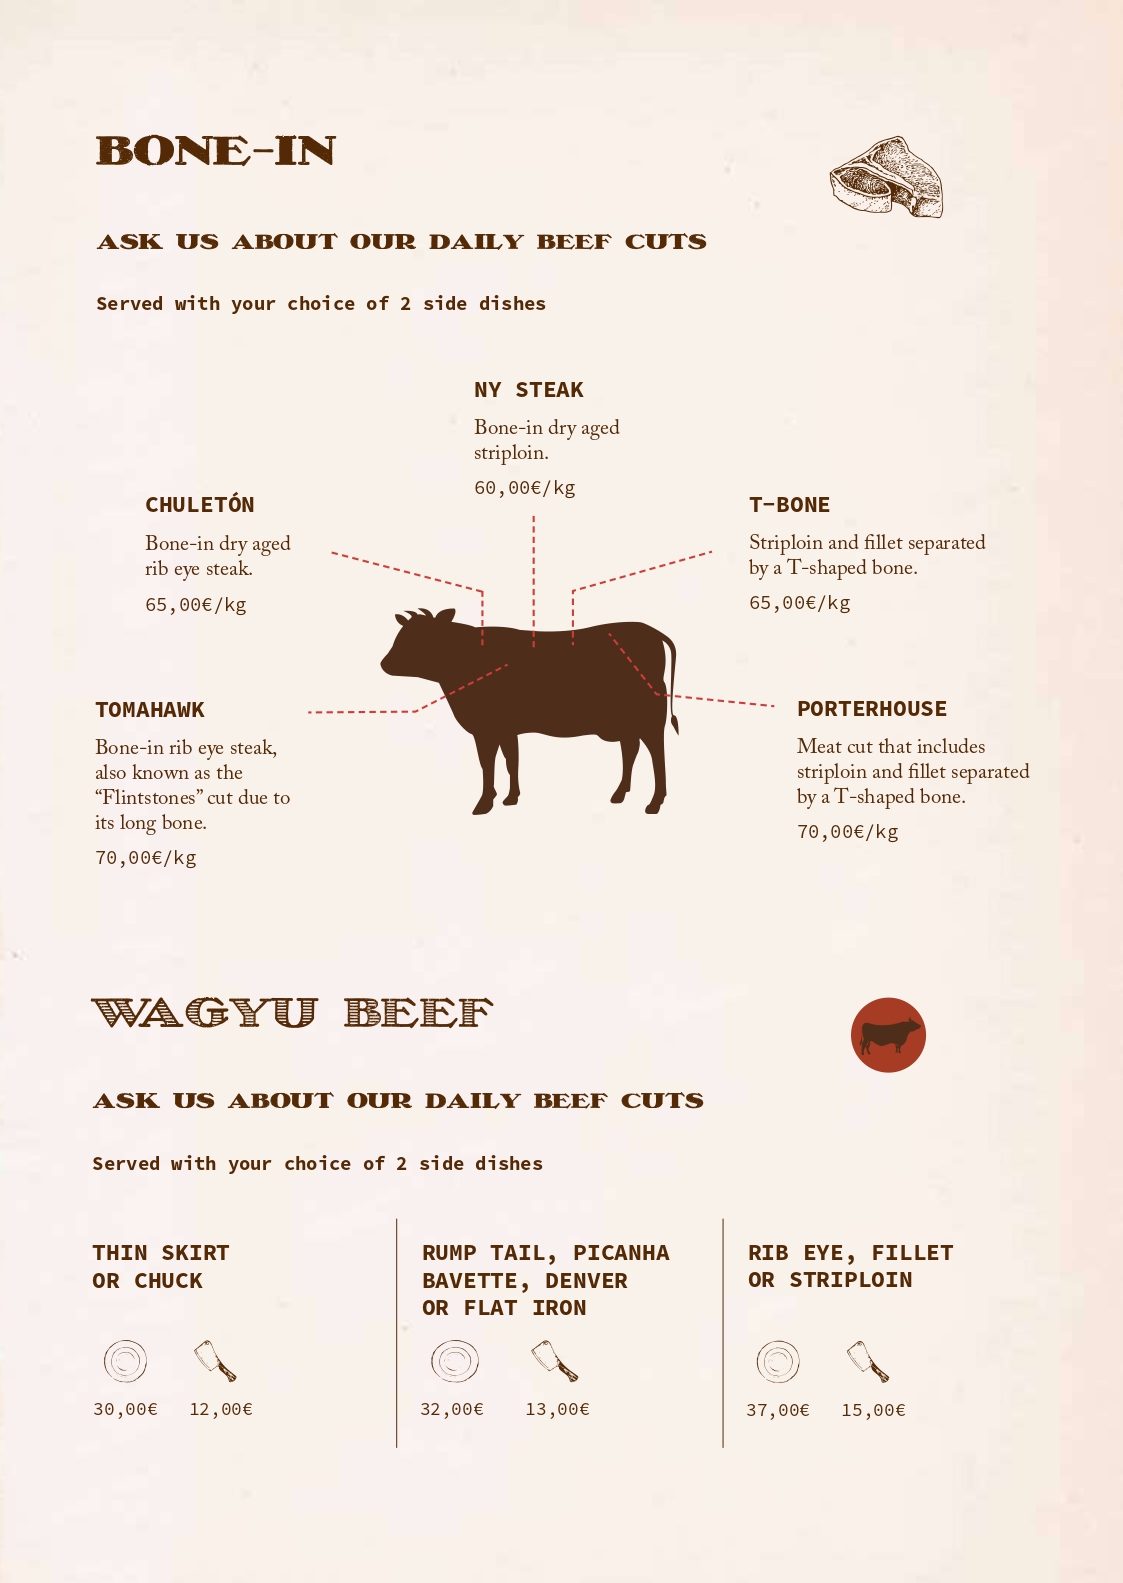 BONE-IN
ASK US ABOUT OUR DAILY BEEF CUTS
Served with your choice of 2 side dishes
NY STEAK
Bone-in dry aged
striploin.
60,00€/kg
CHULETÓN
Bone-in dry aged
rib eye steak.
65,00€/kg
T-BONE
Striploin and fillet separated
by a T-shaped bone.
65,00€/kg
TOMAHAWK
Bone-in rib eye steak,
also known as the
“Flintstones” cut due to
its long bone.
70,00€/kg
PORTERHOUSE
Meat cut that includes
striploin and fillet separated
by a T-shaped bone.
70,00€/kg
WAGYU BEEF
ASK US ABOUT OUR DAILY BEEF CUTS
Served with your choice of 2 side dishes
THIN SKIRT
OR CHUCK
30,00€ 12,00€
RUMP TAIL, PICANHA
BAVETTE, DENVER
OR FLAT IRON
32,00€ 13,00€
RIB EYE, FILLET
OR STRIPLOIN
37,00€ 15,00€